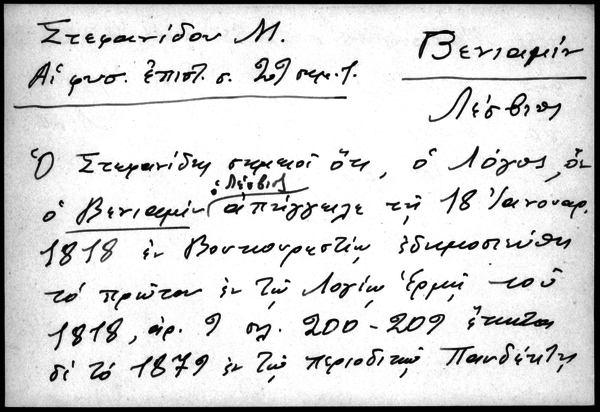 Στεφανίδου Μ.
Αἱ φυσ. ἐπιστ. σ. 29 σημ. 1.
Βενιαμίν
Λέσβιος
Ὁ Στεφανίδης σημειοῖ ὅτι, ὁ Λόγος, ὃν
ὁ Βενιαμίν ὁ Λέσβιος ἀπήγγειλε τῇ 18 Ἰανουαρ.
1818 ἐν Βουκουρεστίῳ ἐδημοσιεύθη
τό πρῶτον ἐν τῷ Λογίῳ Ἑρμῇ τοῦ
1818, ἀρ. 9 σελ. 200-209 ἔπειτα
δέ τό 1879 ἐν τῷ περιοδικῷ Πανδέκτῃ